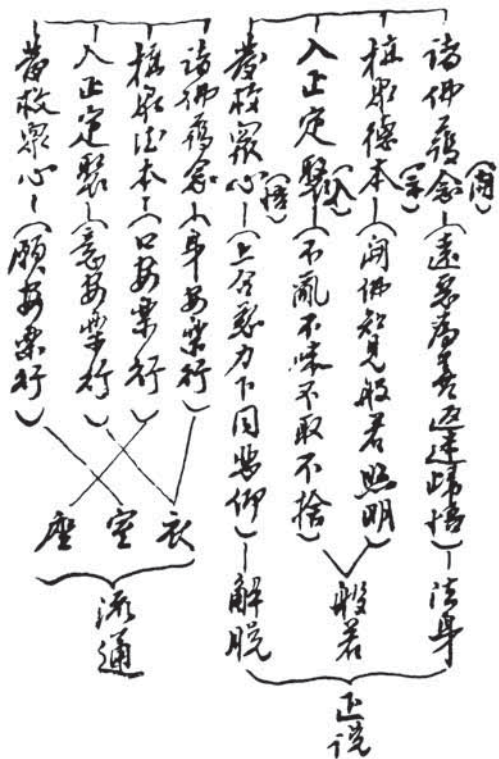 諸佛護念（開）—（遠惡為善返迷歸悟）—法身
植眾德本（示）—（開佛知見般若照明）
入正定聚（入）—（不亂不味不取不捨）
般若
發救眾心（悟）—（上合慈力下同悲仰）—解脫
正说
諸佛護念—（身安樂行）
植眾德本—（口安樂行）
入正定聚—（意安樂行）
發救眾心—（願安樂行）
衣
室
座
流通